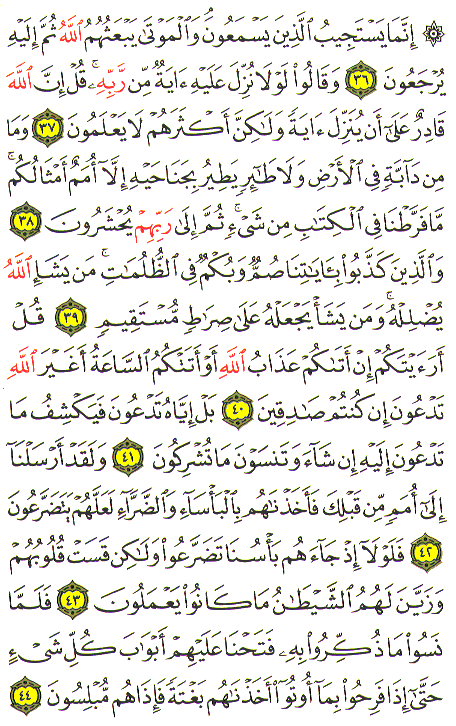 ۞ إِنَّمَا يَسْتَجِيبُ ٱلَّذِينَ يَسْمَعُونَ وَٱلْمَوْتَىٰ يَبْعَثُهُمُ ٱللَّهُ ثُمَّ إِلَيْهِ
يُرْجَعُونَ ٣٦ وَقَالُوا۟ لَوْلَا نُزِّلَ عَلَيْهِ ءَايَةٌ مِّن رَّبِّهِۦ ۚ قُلْ إِنَّ ٱللَّهَ
قَادِرٌ عَلَىٰٓ أَن يُنَزِّلَ ءَايَةً وَلَـٰكِنَّ أَكْثَرَهُمْ لَا يَعْلَمُونَ ٣٧ وَمَا
مِن دَآبَّةٍ فِى ٱلْأَرْضِ وَلَا طَـٰٓئِرٍ يَطِيرُ بِجَنَاحَيْهِ إِلَّآ أُمَمٌ أَمْثَالُكُم ۚ
مَّا فَرَّطْنَا فِى ٱلْكِتَـٰبِ مِن شَىْءٍ ۚ ثُمَّ إِلَىٰ رَبِّهِمْ يُحْشَرُونَ ٣٨
وَٱلَّذِينَ كَذَّبُوا۟ بِـَٔايَـٰتِنَا صُمٌّ وَبُكْمٌ فِى ٱلظُّلُمَـٰتِ ۗ مَن يَشَإِ ٱللَّهُ
يُضْلِلْهُ وَمَن يَشَأْ يَجْعَلْهُ عَلَىٰ صِرَٰطٍ مُّسْتَقِيمٍ ٣٩ قُلْ
أَرَءَيْتَكُمْ إِنْ أَتَىٰكُمْ عَذَابُ ٱللَّهِ أَوْ أَتَتْكُمُ ٱلسَّاعَةُ أَغَيْرَ ٱللَّهِ
تَدْعُونَ إِن كُنتُمْ صَـٰدِقِينَ ٤٠ بَلْ إِيَّاهُ تَدْعُونَ فَيَكْشِفُ مَا
تَدْعُونَ إِلَيْهِ إِن شَآءَ وَتَنسَوْنَ مَا تُشْرِكُونَ ٤١ وَلَقَدْ أَرْسَلْنَآ
إِلَىٰٓ أُمَمٍ مِّن قَبْلِكَ فَأَخَذْنَـٰهُم بِٱلْبَأْسَآءِ وَٱلضَّرَّآءِ لَعَلَّهُمْ يَتَضَرَّعُونَ
٤٢ فَلَوْلَآ إِذْ جَآءَهُم بَأْسُنَا تَضَرَّعُوا۟ وَلَـٰكِن قَسَتْ قُلُوبُهُمْ
وَزَيَّنَ لَهُمُ ٱلشَّيْطَـٰنُ مَا كَانُوا۟ يَعْمَلُونَ ٤٣ فَلَمَّا
نَسُوا۟ مَا ذُكِّرُوا۟ بِهِۦ فَتَحْنَا عَلَيْهِمْ أَبْوَٰبَ كُلِّ شَىْءٍ
حَتَّىٰٓ إِذَا فَرِحُوا۟ بِمَآ أُوتُوٓا۟ أَخَذْنَـٰهُم بَغْتَةً فَإِذَا هُم مُّبْلِسُونَ ٤٤